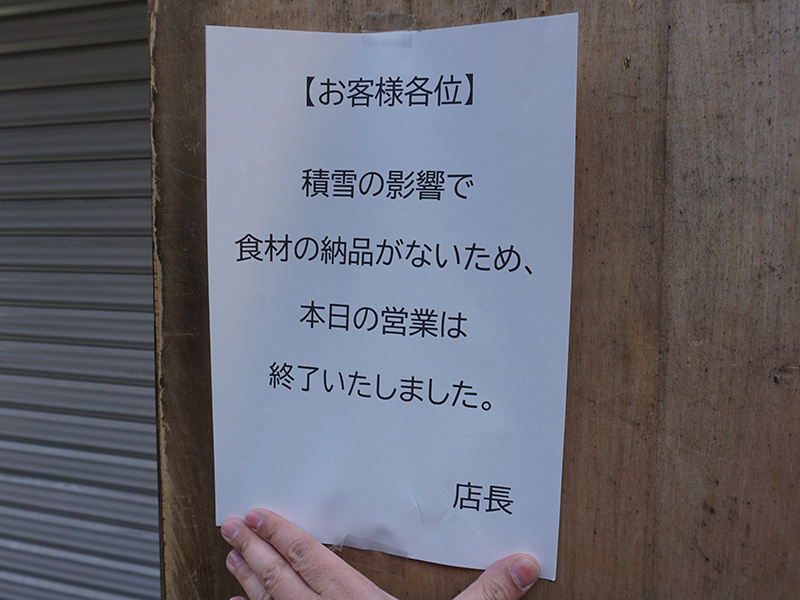 【お客様各位】
積雪の影響で
食材の納品がないため、
本日の営業は
終了いたしました。
店長